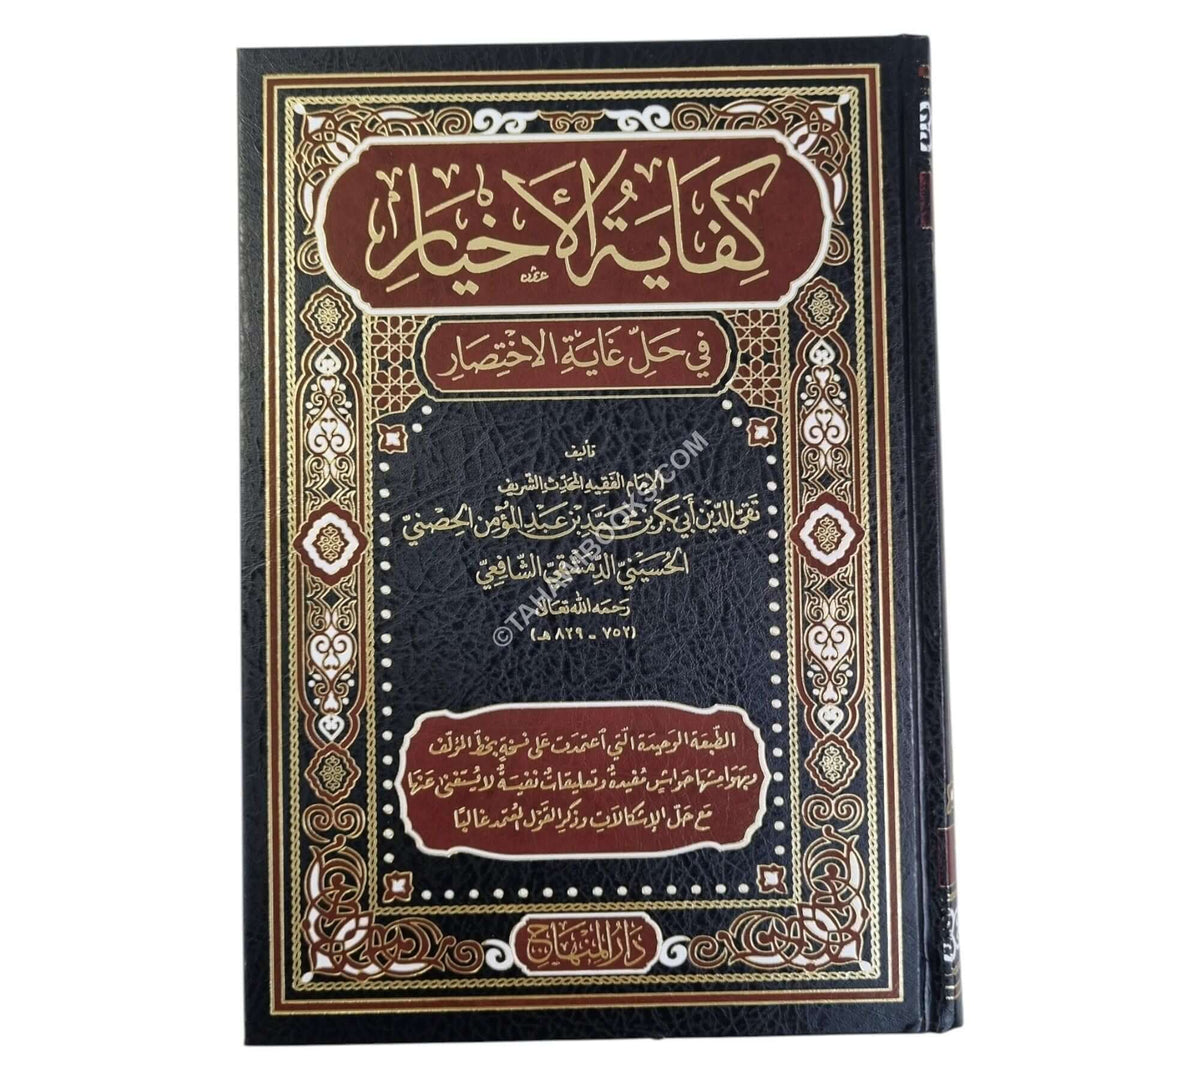 كِفَايَةُ الأَخْيَارِ
فِي حَلِّ غَايَةِ الِاخْتِصَارِ
تأليف
الإمام الفقيه المحدّث الشريف
تقيّ الدّين أبي بكر بن محمّد بن عبد المؤمن الحصنيّ
الحسينيّ الدّمشقيّ الشّافعيّ
رحمه الله تعالى
(٧٥٢ - ٨٢٩ هـ)
©TAHAMIBOOKS.COM
الطّبعة الوحيدة الّتي اعتمدت على نسخةٍ بخطّ المؤلّف
وبهوامشها حواشٍ مفيدةٌ وتعليقاتٌ نفيسةٌ لا يُستغنى عنها
مع حلّ الإشكالات وذكر القول المعتمد غالبًا
دار المنهاج